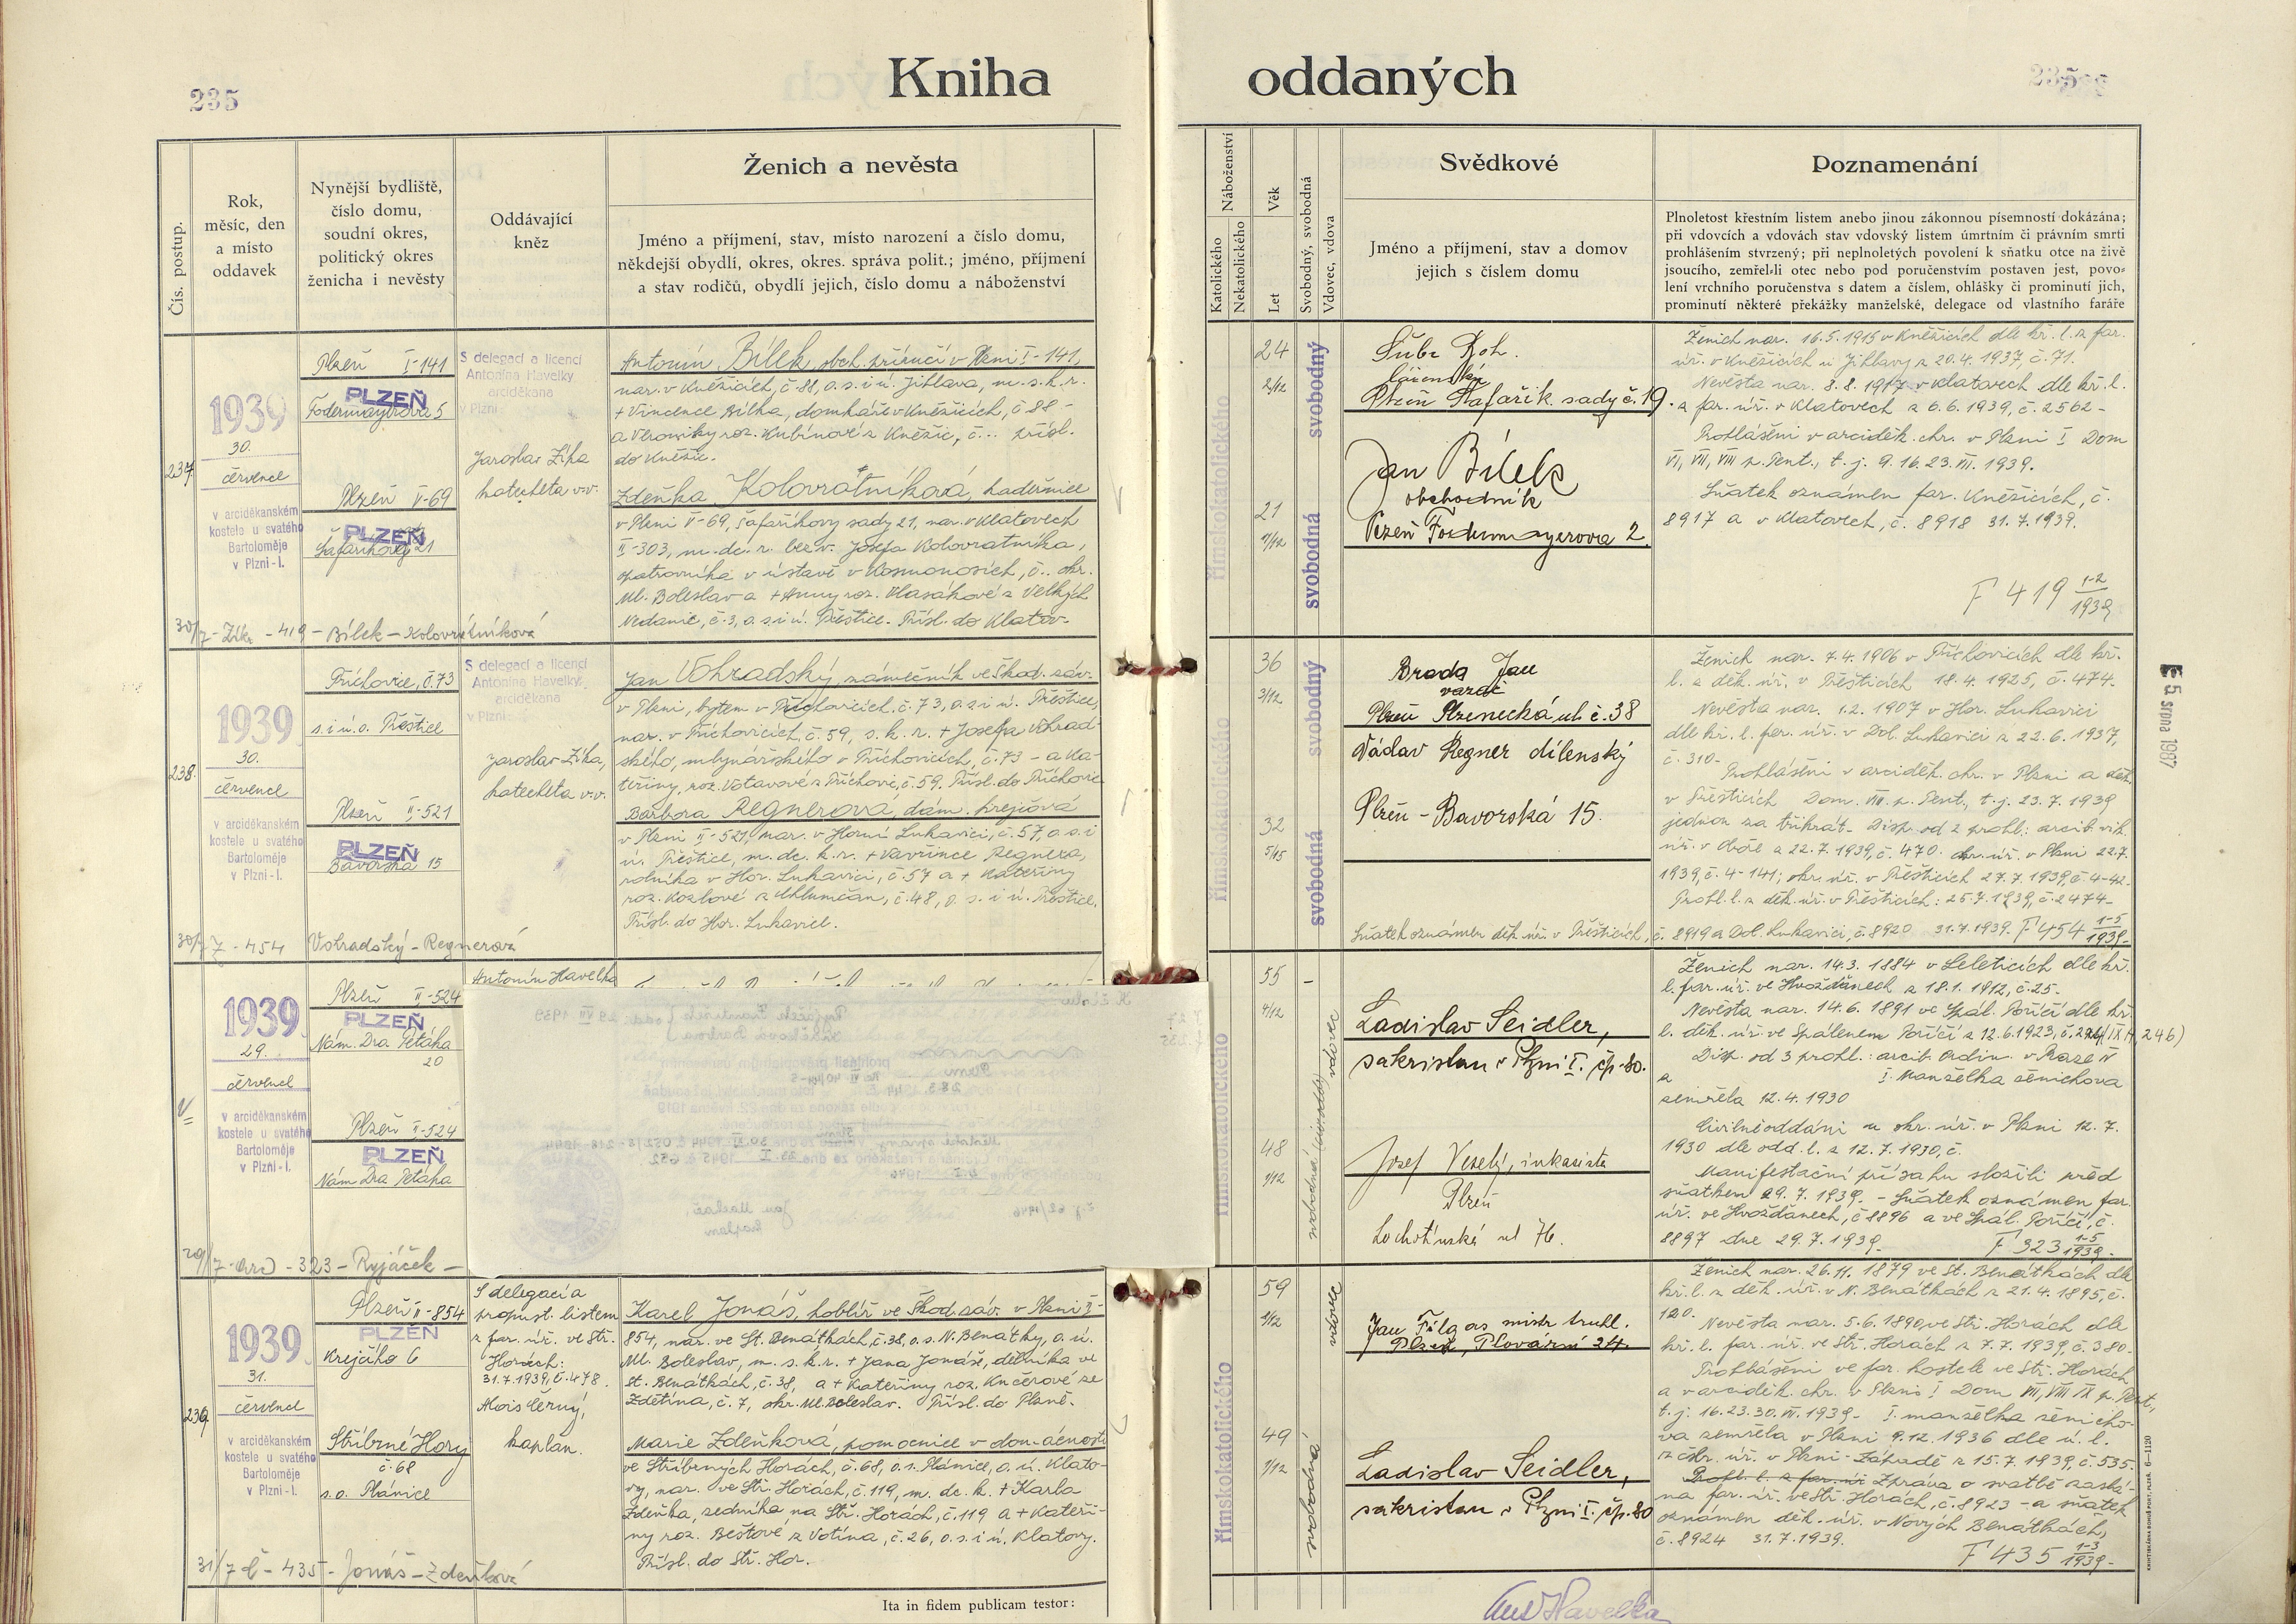 235
Kniha oddaných
Čís. postup.
Rok,
měsíc, den
a místo
oddavek
Nynější bydliště,
číslo domu,
soudní okres,
politický okres
ženicha i nevěsty
Oddávající
kněz
Ženich a nevěsta
Jméno a příjmení, stav, místo narození a číslo domu,
někdejší obydlí, okres, okres. správa polit.; jméno, příjmení
a stav rodičů, obydlí jejich, číslo domu a náboženství
Náboženství
Katolického
Nekatolického
Věk
Let
Svobodný, svobodná
Vdovec, vdova
Svědkové
Jméno a příjmení, stav a domov
jejich s číslem domu
Poznamenání
Plnoletost křestním listem anebo jinou zákonnou písemností dokázána;
při vdovcích a vdovách stav vdovský listem úmrtním či právním smrti
prohlášením stvrzený; při neplnoletých povolení k sňatku otce na živě
jsoucího, zemřel-li otec nebo pod poručenstvím postaven jest, povo-
lení vrchního poručenstva s datem a číslem, ohlášky či prominutí jich,
prominutí některé překážky manželské, delegace od vlastního faráře
237
1939
30.
července
v arciděkanském
kostele u svatého
Bartoloměje
v Plzni-I.
Plzeň I-141
PLZEŇ
Plzeň V-69
PLZEŇ
S delegací a licencí
Antonína Havelky
arciděkana
v Plzni
Jaroslav Zíka
katecheta v.v.
Antonín Bílek, obch. příručí v Plzni I-141,
nar. v Kněžicích, č. 88, o. s. i ú. Jihlava, m. s. k. r.
+ Vincence Bílka, domkáře v Kněžicích, č 88 -
a Veroniky roz. Kubínové z Kněžic, č... přísl.
do Kněžic.
Zdeňka Kolovratníková, kadeřnice
v Plzni V-69, Šafaříkovy sady 21, nar. v Klatovech
II-303, m. dc. r. bez v. Josefa Kolovratníka,
opatrovníka v ústavě v Kosmonosích, č.. okr.
Ml. Boleslav a + Anny roz. Vlasákové z Velkých
Nedanic, č. 3, o. s. i ú. Přeštice. Přísl. do Klatov.
30/7 - Zíka - 419 - Bílek - Kolovratníková
římskokatolického
24
2/12
21
svobodný
svobodná
Plzeň Šafařík. sady č. 19.
Jan Bílek
obchodník
Ženich nar. 16.5.1915 v Kněžicích dle kř. l. z far.
úř. v Kněžicích u Jihlavy z 20.4.1937 č. 71.
Nevěsta nar. 8.8.1917 v Klatovech dle kř. l.
z far. úř. v Klatovech z 6.6.1939, č. 2562 -
Prohlášeni v arciděk. chr. v Plzni I Dom
VI, VII, VIII p. Pent., t. j. 9. 16. 23. VII. 1939.
Sňatek oznámen far. Kněžicích, č.
8917 a v Klatovech, č. 8918 31.7.1939.
F 419 1-2
1939
238.
1939
30.
července
v arciděkanském
kostele u svatého
Bartoloměje
v Plzni-I.
Příchovice, č. 73
s. i ú. o. Přeštice
Plzeň II-521
PLZEŇ
Bavorská 15
S delegací a licencí
Antonína Havelky,
arciděkana
v Plzni
Jaroslav Zíka,
katecheta v.v.
Jan Vohradský, zámečník ve Škod. záv.
v Plzni, bytem v Příchovicích, č. 73, o. s. i ú. Přeštice,
nar. v Příchovicích, č. 59, s. k. r. + Josefa Vohrad-
ského, mlynářského v Příchovicích, č. 73 - a Ka-
teřiny, roz. Votavové z Příchovic, č. 59. Přísl. do Příchovic
Barbora Regnerova, dám. krejčová
v Plzni II-521, nar. v Horní Lukavici, č. 57, o. s. i
ú. Přeštice, m. dc. k. r. + Vavřince Regnera,
rolníka v Hor. Lukavici, č. 57 a + Kateřiny
roz. Kozlové z Chlumčan, č. 48, o. s. i ú. Přeštice.
Přísl. do Hor. Lukavice.
30/7 - 454 Vohradský - Regnerová
římskokatolického
36
3/12
32
svobodný
svobodná
Brada Jan
Plzeň Plzenecká ul. č. 38
Václav Regner dílenský
Plzeň - Bavorská 15.
Ženich nar. 7.4.1906 v Příchovicích dle kř.
l. z děk. úř. v Přešticích 18.4.1925, č. 474.
Nevěsta nar. 1.2.1907 v Hor. Lukavici
dle kř. l. far. úř. v Dol. Lukavici z 22.6.1937,
č. 310-
Prohlášeni v arciděk. chr. v Plzni a děk.
v Přešticích Dom. VIII. p. Pent., t. j. 23.7.1939
jednou za třikrát - Disp. od 2 prohl.: arcib. vik.
úř. v 22.7.1939, č. 470. okr. úř. v Plzni 22.7.
1939, č. 4-141; okr. úř. v Přešticích 27.7.1939, č. 4-42-
Prohl. l. z děk. úř. v Přešticích: 25.7.1939, č. 2474-
Sňatek oznámen děk. úř. v Přešticích, č. 8919 a Dol. Lukavici, č. 8920 31.7.1939. F 454 1-5
1939-
1939
29.
července
v arciděkanském
kostele u svatého
Bartoloměje
v Plzni-I.
Plzeň II-524
PLZEŇ
Nám. Dra Petáka
20
Plzeň II-524
PLZEŇ
Nám Dra Petáka
Antonín Havelka
29/7 - Arc - 323 - Ryjáček -
římskokatolického
55
4/12
48
1/12
vdovec
Ladislav Seidler,
sakristan v Plzni I. čp. 80.
Josef Veselý, inkasista
Plzeň
Lochotínská ul 76.
Ženich nar. 14.3.1884 v Leleticích dle kř.
l. far. úř. ve Hvožďanech z 18.1.1912, č. 25-
Nevěsta nar. 14.6.1891 ve Spál. Poříčí dle kř.
l. děk. úř. ve Spáleném Poříčí z 12.6.1923,
Disp. od 3 prohl.: arcib. Ordin. v Praze IV
z I. manželka ženichova
zemřela 12.4.1930
Civilně oddáni u okr. úř. v Plzni 12.7.
1930 dle odd. l. z 12.7.1930, č.
Manifestační přísahu složili před
sňatkem 29.7.1939. - Sňatek oznámen far.
úř. ve Hvožďanech, č 8896 a ve Spál. Poříčí, č.
8897 dne 29.7.1939. F 323 1-5
1939-
239
1939
31.
července
v arciděkanském
kostele u svatého
Bartoloměje
v Plzni-I.
Plzeň II-854
PLZEŇ
Krejčího 6
Stříbrné Hory
č. 68
s. o. Plánice
S delegací a
propust. listem
z far. úř. ve Stř.
Horách:
31.7.1939, č. 478.
Alois Černý,
kaplan.
Karel Jonáš, hoblíř ve Škod. záv. v Plzni II-
854, nar. ve St. Benátkách, č. 38, o. s. N. Benátky, o. ú.
Ml. Boleslav, m. s. k. r. + Jana Jonáše, dělníka ve
St. Benátkách, č. 38, a + Kateřiny roz. Kučerové ze
Zdětína, č. 7, okr. Ml. Boleslav. Přísl. do Plzně.
Marie Zdeňková, pomocnice v domácnosti
ve Stříbrných Horách, č. 68, o. s. Plánice, o. ú. Klato-
vy, nar. ve Stř. Horách, č. 119, m. dc. k. + Karla
Zdeňka, sedníka na Stř. Horách, č. 119 a + Kateři-
ny roz. Beštové z Votína, č. 26, o. s. i ú. Klatovy.
Přísl. do Stř. Hor.
31/7 č - 435 - Jonáš - Zdeňková
římskokatolického
59
49
1/12
vdovec
svobodná
Plzeň, Plovární 24.
Ladislav Seidler,
sakristan v Plzni I. čp. 80
Ženich nar. 26.11.1879 ve St. Benátkách dle
kř. l. z děk. úř. v N. Benátkách z 21.4.1895, č.
120.
Nevěsta nar. 5.6.1890, ve Stř. Horách dle
kř. l. far. úř. ve Stř. Horách z 7.7.1939, č. 380.
Prohlášeni ve far. kostele ve Stř. Horách
a v arciděk. chr. v Plzni I Dom VII, VIII IX p. Pent.,
t. j. 16. 23. 30. VII. 1939- I. manželka ženicho-
va zemřela v Plzni 9.12.1936 dle ú. l.
z okr. úř. v Plzni-Zápřadě z 15.7.1939, č. 535.
Prohl. l. z far. úř Zpráva o svatbě zaslá-
na far. úř. ve Stř. Horách, č. 8923 - a sňatek
oznámen děk. úř. v Nových Benátkách,
č. 8924 31.7.1939.
F 435 1-3
1939-
5. srpna 1987
Ita in fidem publicam testor:
Ant Havelka